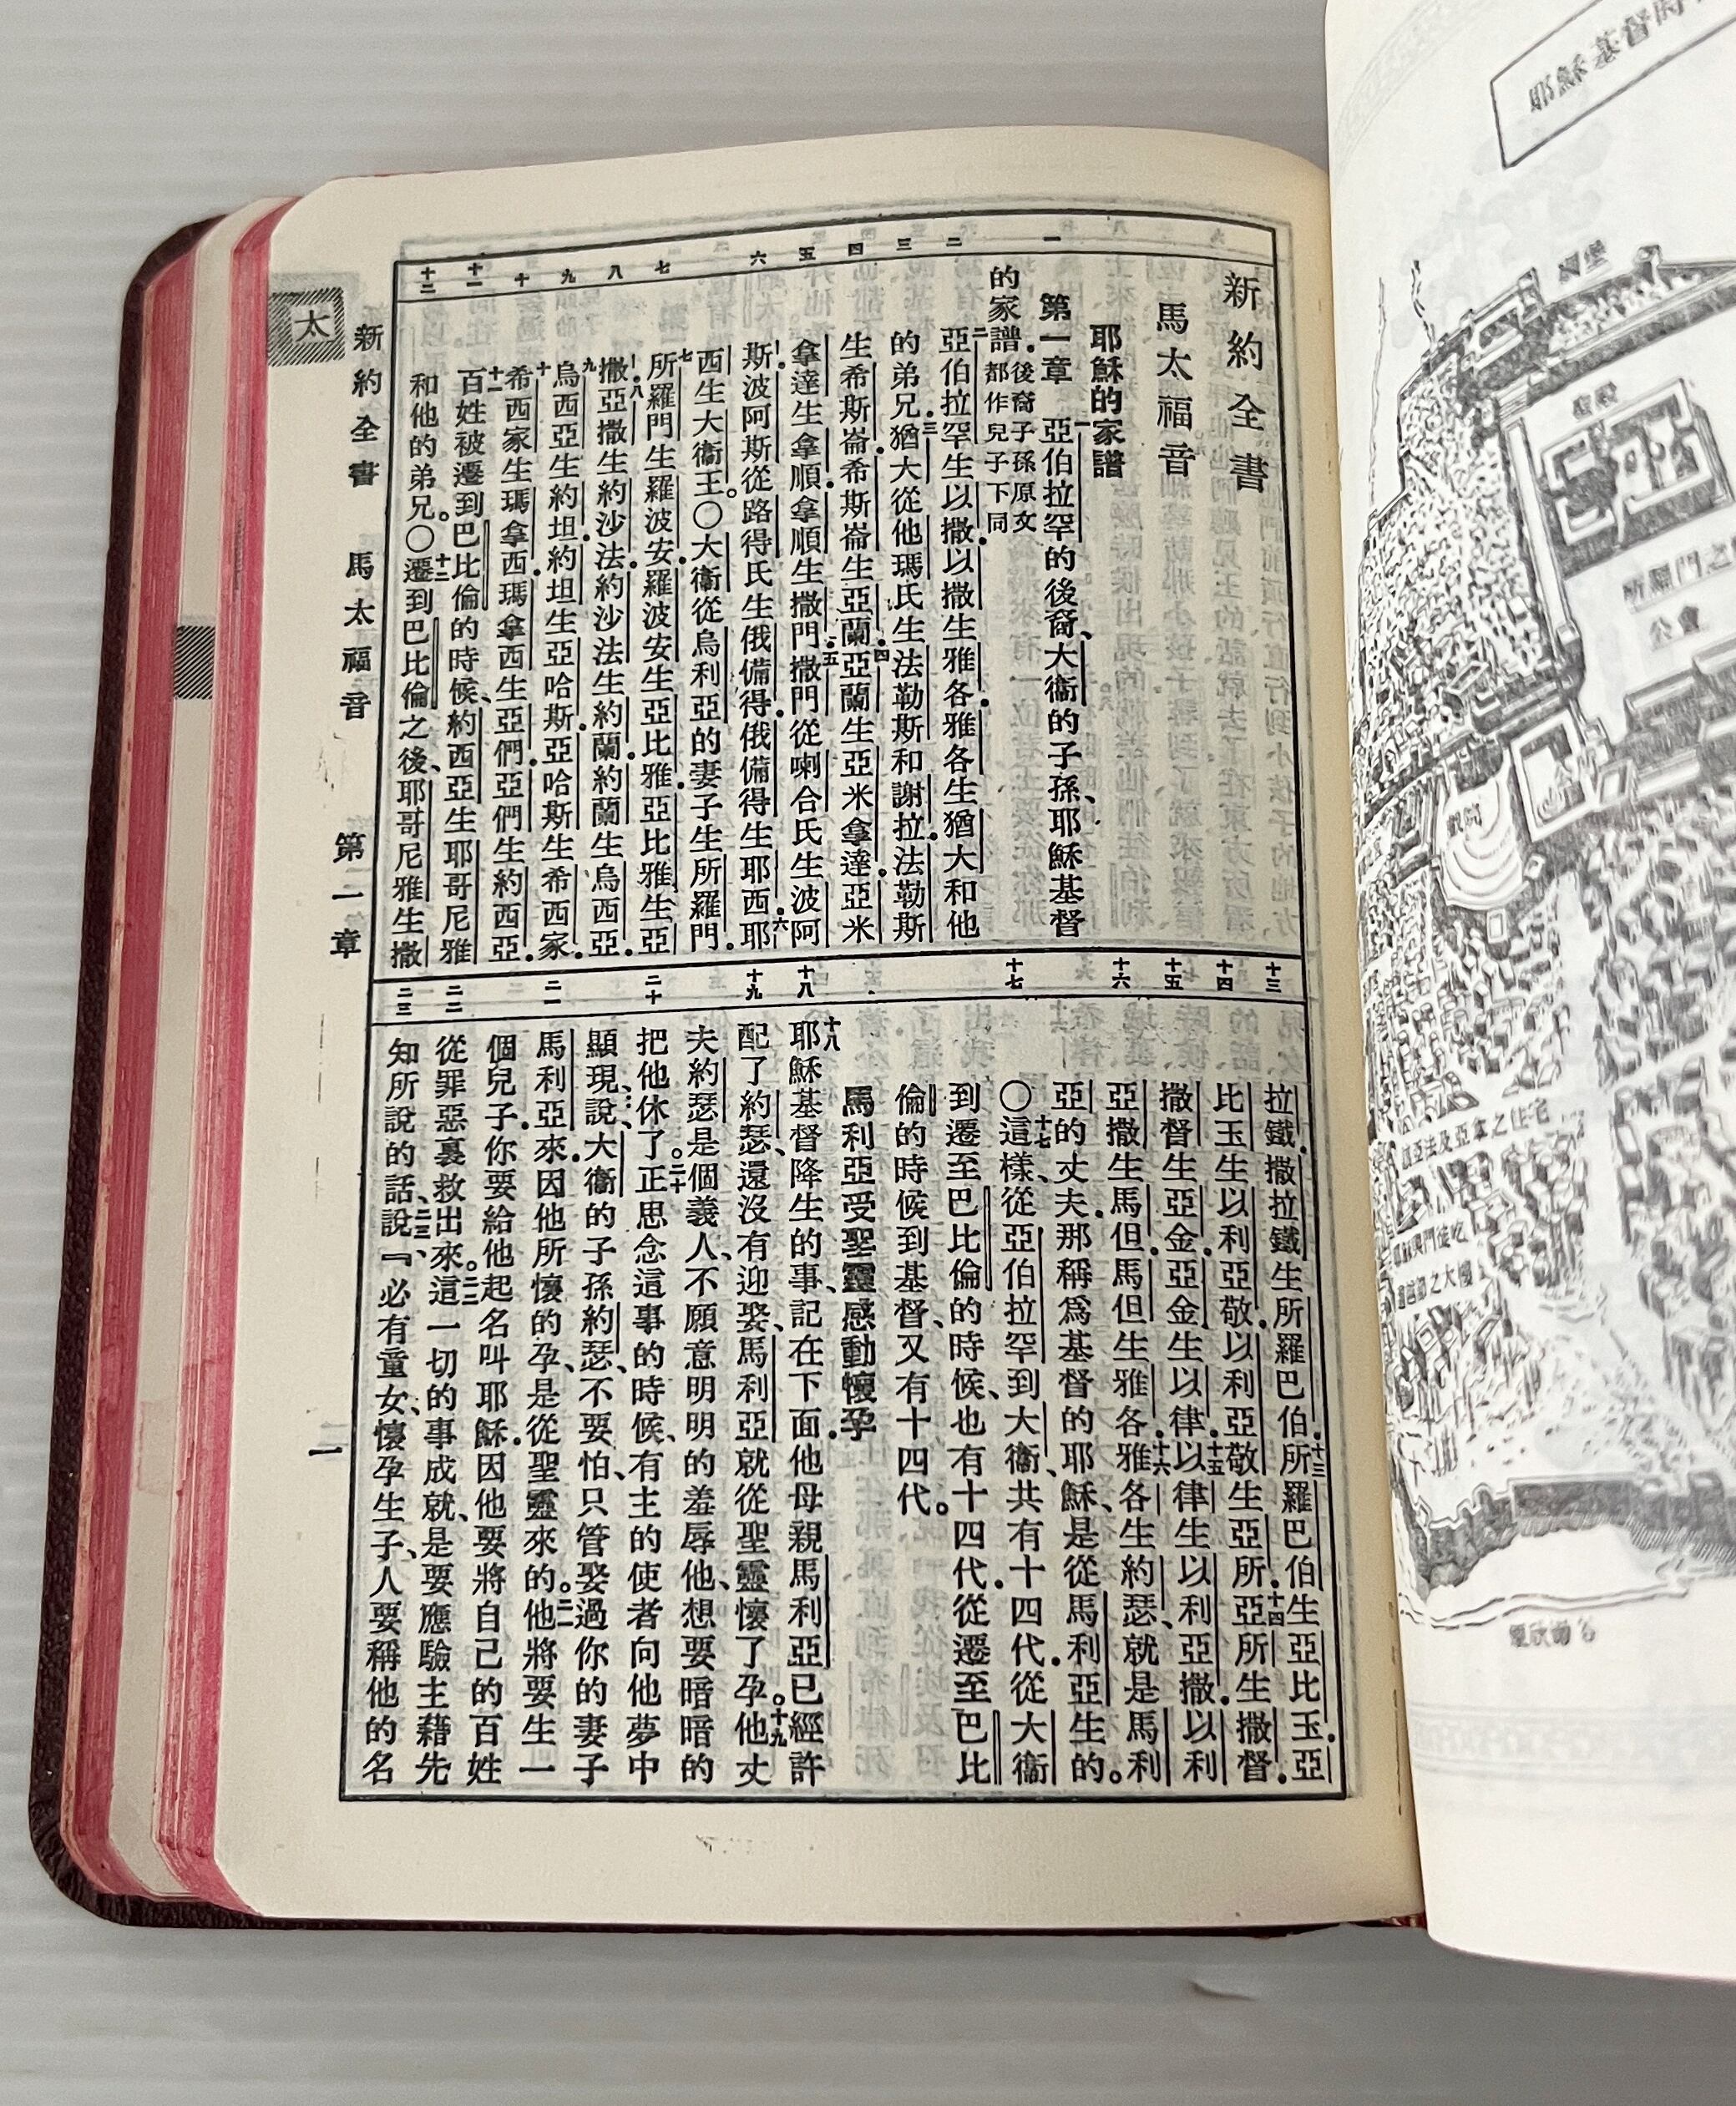 耶穌基督時
一 二 三 四 五 六 七 八 九 十 十一 十二
新約全書
馬太福音
耶穌的家譜
第一章 一亞伯拉罕的後裔、大衞的子孫、耶穌基督
的家譜．後裔子孫原文都作兒子下同
二亞伯拉罕生以撒．以撒生雅各．雅各生猶大和他
的弟兄．三猶大從他瑪氏生法勒斯和謝拉．法勒斯
生希斯崙．希斯崙生亞蘭．四亞蘭生亞米拿達．亞米
拿達生拿順．拿順生撒門．五撒門從喇合氏生波阿
斯．波阿斯從路得氏生俄備得．俄備得生耶西．六耶
西生大衞王。〇大衞從烏利亞的妻子生所羅門．
七所羅門生羅波安．羅波安生亞比雅．亞比雅生亞
撒．八亞撒生約沙法．約沙法生約蘭．約蘭生烏西亞．
九烏西亞生約坦．約坦生亞哈斯．亞哈斯生希西家．
十希西家生瑪拿西．瑪拿西生亞們．亞們生約西亞．
十一百姓被遷到巴比倫的時候、約西亞生耶哥尼雅
和他的弟兄。〇十二遷到巴比倫之後、耶哥尼雅生撒
十三 十四 十五 十六 十七 十八 十九 二十 二一 二二 二三
拉鐵．撒拉鐵生所羅巴伯．十三所羅巴伯生亞比玉．亞
比玉生以利亞敬．以利亞敬生亞所．十四亞所生撒督．
撒督生亞金．亞金生以律．十五以律生以利亞撒．以利
亞撒生馬但．馬但生雅各．十六雅各生約瑟、就是馬利
亞的丈夫．那稱爲基督的耶穌、是從馬利亞生的。
〇十七這樣、從亞伯拉罕到大衞、共有十四代．從大衞
到遷至巴比倫的時候、也有十四代．從遷至巴比
倫的時候到基督、又有十四代。
馬利亞受聖靈感動懷孕
十八耶穌基督降生的事、記在下面．他母親馬利亞已經許
配了約瑟、還沒有迎娶、馬利亞就從聖靈懷了孕。十九他丈
夫約瑟是個義人、不願意明明的羞辱他、想要暗暗的
把他休了。二十正思念這事的時候、有主的使者向他夢中
顯現、說、大衞的子孫約瑟、不要怕、只管娶過你的妻子
馬利亞來．因他所懷的孕、是從聖靈來的。二一他將要生一
個兒子．你要給他起名叫耶穌．因他要將自己的百姓
從罪惡裏救出來。二二這一切的事成就、是要應驗主藉先
知所說的話、二三說、『必有童女、懷孕生子、人要稱他的名
太
新約全書 馬太福音 第一章
一